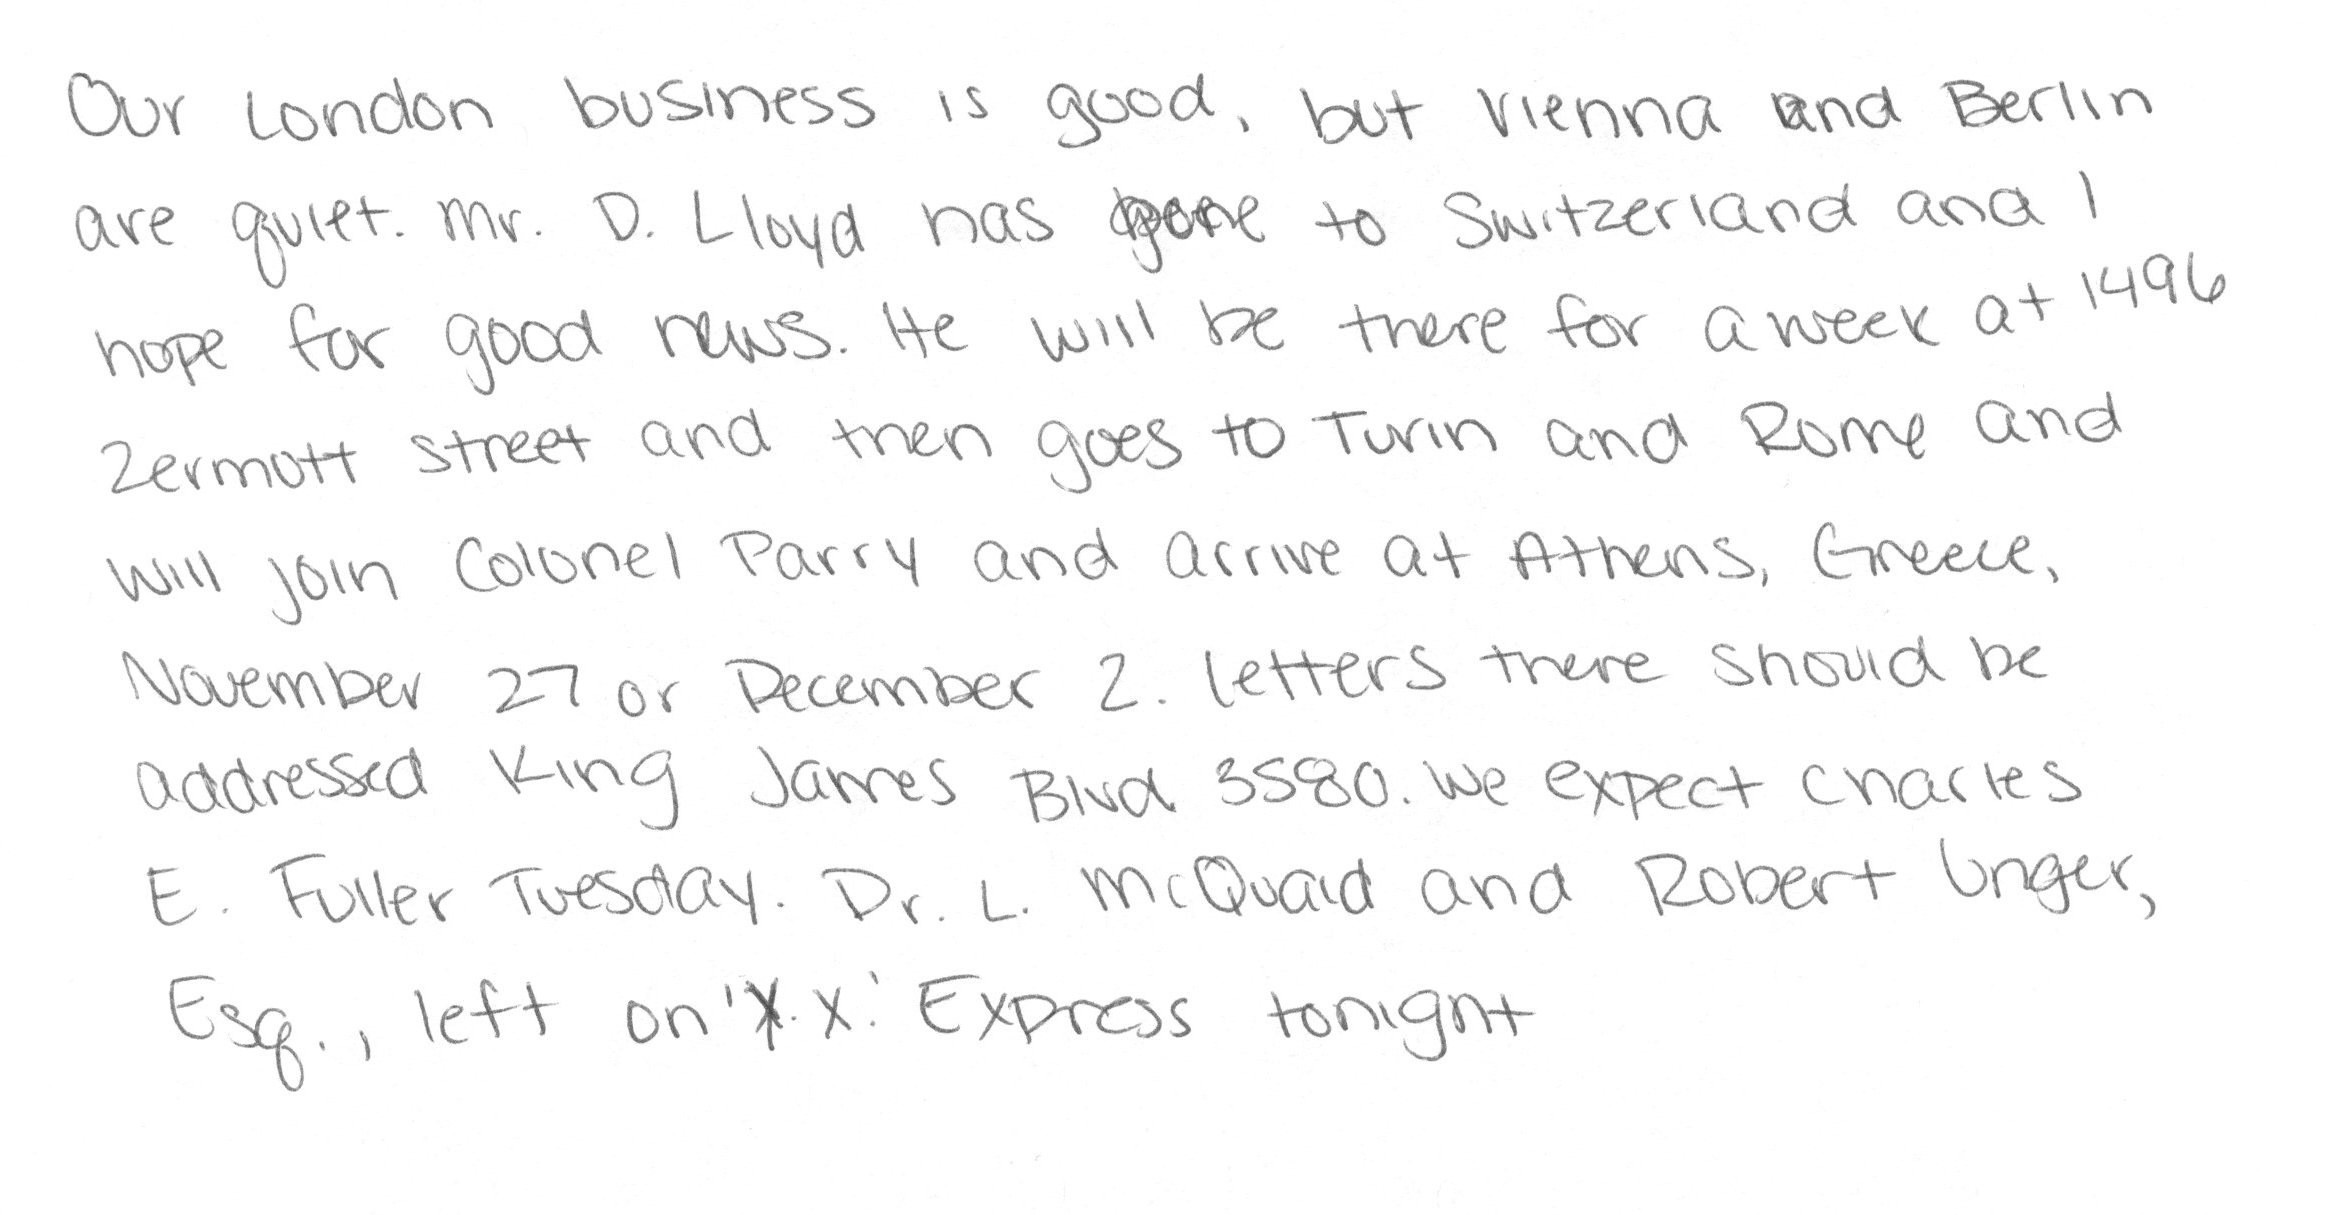 Our London business is good, but Vienna and Berlin
are quiet. Mr. D. Lloyd has gone to Switzerland and I
hope for good news. He will be there for a week at 1496
Zermott street and then goes to Turin and Rome and
will join Colonel Parry and arrive at Athens, Greece,
November 27 or December 2. Letters there should be
addressed King James Blvd 3580. We expect Charles
E. Fuller Tuesday. Dr. L. McQuaid and Robert Unger,
Esq., left on 'X.X.' Express tonight